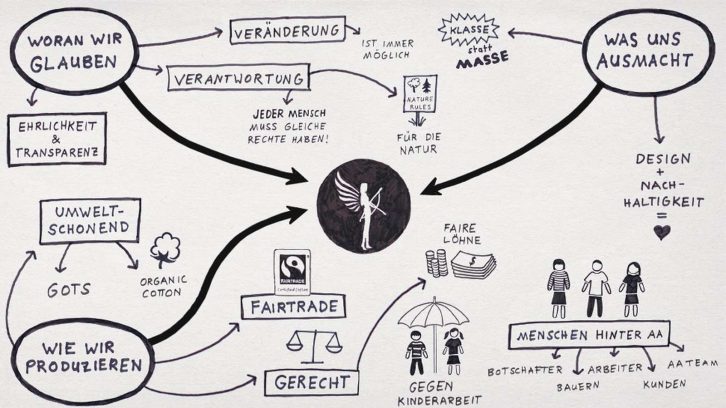 WORAN WIR
GLAUBEN
VERÄNDERUNG
IST IMMER
MÖGLICH
VERANTWORTUNG
JEDER MENSCH
MUSS GLEICHE
RECHTE HABEN!
NATURE
RULES
FÜR DIE
NATUR
EHRLICHKEIT
&
TRANSPARENZ
KLASSE
statt
MASSE
WAS UNS
AUSMACHT
DESIGN
+
NACH-
HALTIGKEIT
=
UMWELT-
SCHONEND
GOTS
ORGANIC
COTTON
WIE WIR
PRODUZIEREN
FAIRTRADE
Certified Cotton
FAIRTRADE
GERECHT
FAIRE
LÖHNE
$
GEGEN
KINDERARBEIT
MENSCHEN HINTER AA
BOTSCHAFTER
BAUERN
ARBEITER
KUNDEN
AATEAM